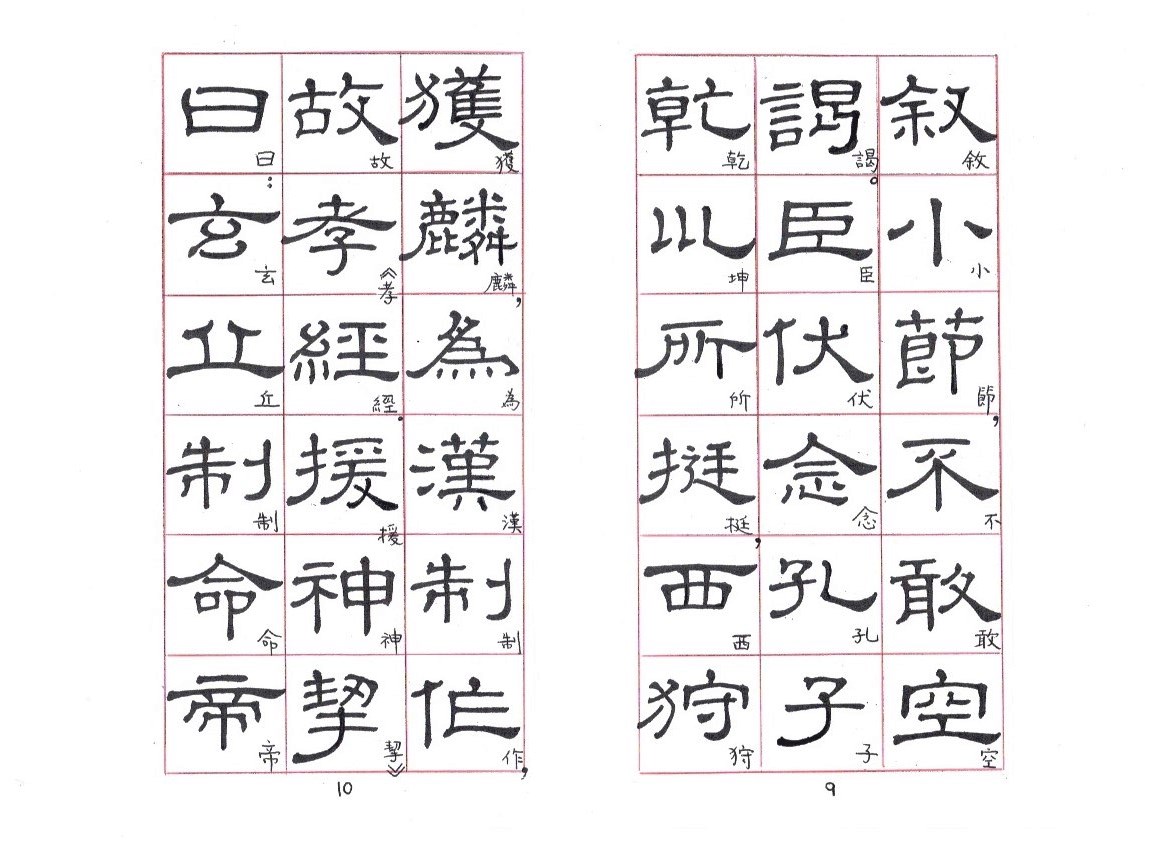 叙小節不敢空
敘小節，不敢空
謁臣伏念孔子
謁。臣伏念孔子
乾川所挺西狩
乾坤所挺，西狩
9
獲麟為漢制作
獲麟，為漢制作，
故孝經援神挈
故《孝經.援神挈》
曰玄丘制命帝
曰：玄丘制命帝
10